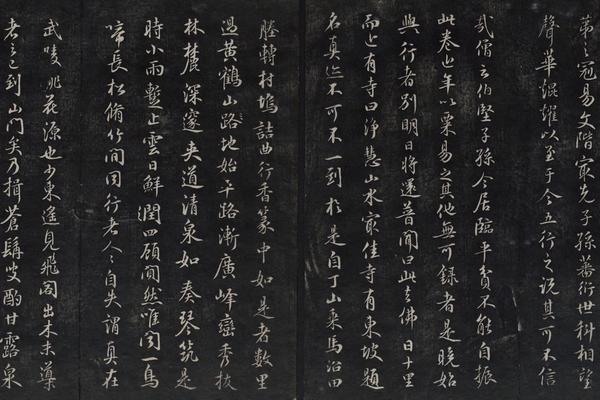 第之冠易文階最先子孫蕃衍世科相望
聲華焜燿以至于今五行之説其可不信
哉僧云伯堅子孫今居臨平貧不能自振
此卷近年以粟易之其他無可録者是晚始
與行者別明日將還普聞曰此去佛日十里
而近有寺曰淨慧山水最佳寺有東坡題
名真迹不可不一到於是自丁山乘馬沿田
塍轉村塢詰曲行香篆中如是者數里
過黄鶴山路地始平路漸廣峰巒秀拔
林麓深邃夾道清泉如奏琴筑是
時小雨蹔止雲日鮮潤四顧闃然唯聞一鳥
啼長松脩竹間同行者人人自失謂真在
武陵桃花源也少東遥見飛閣出木末導
者云已到山門矣乃揖蒼髯叟酌甘露泉